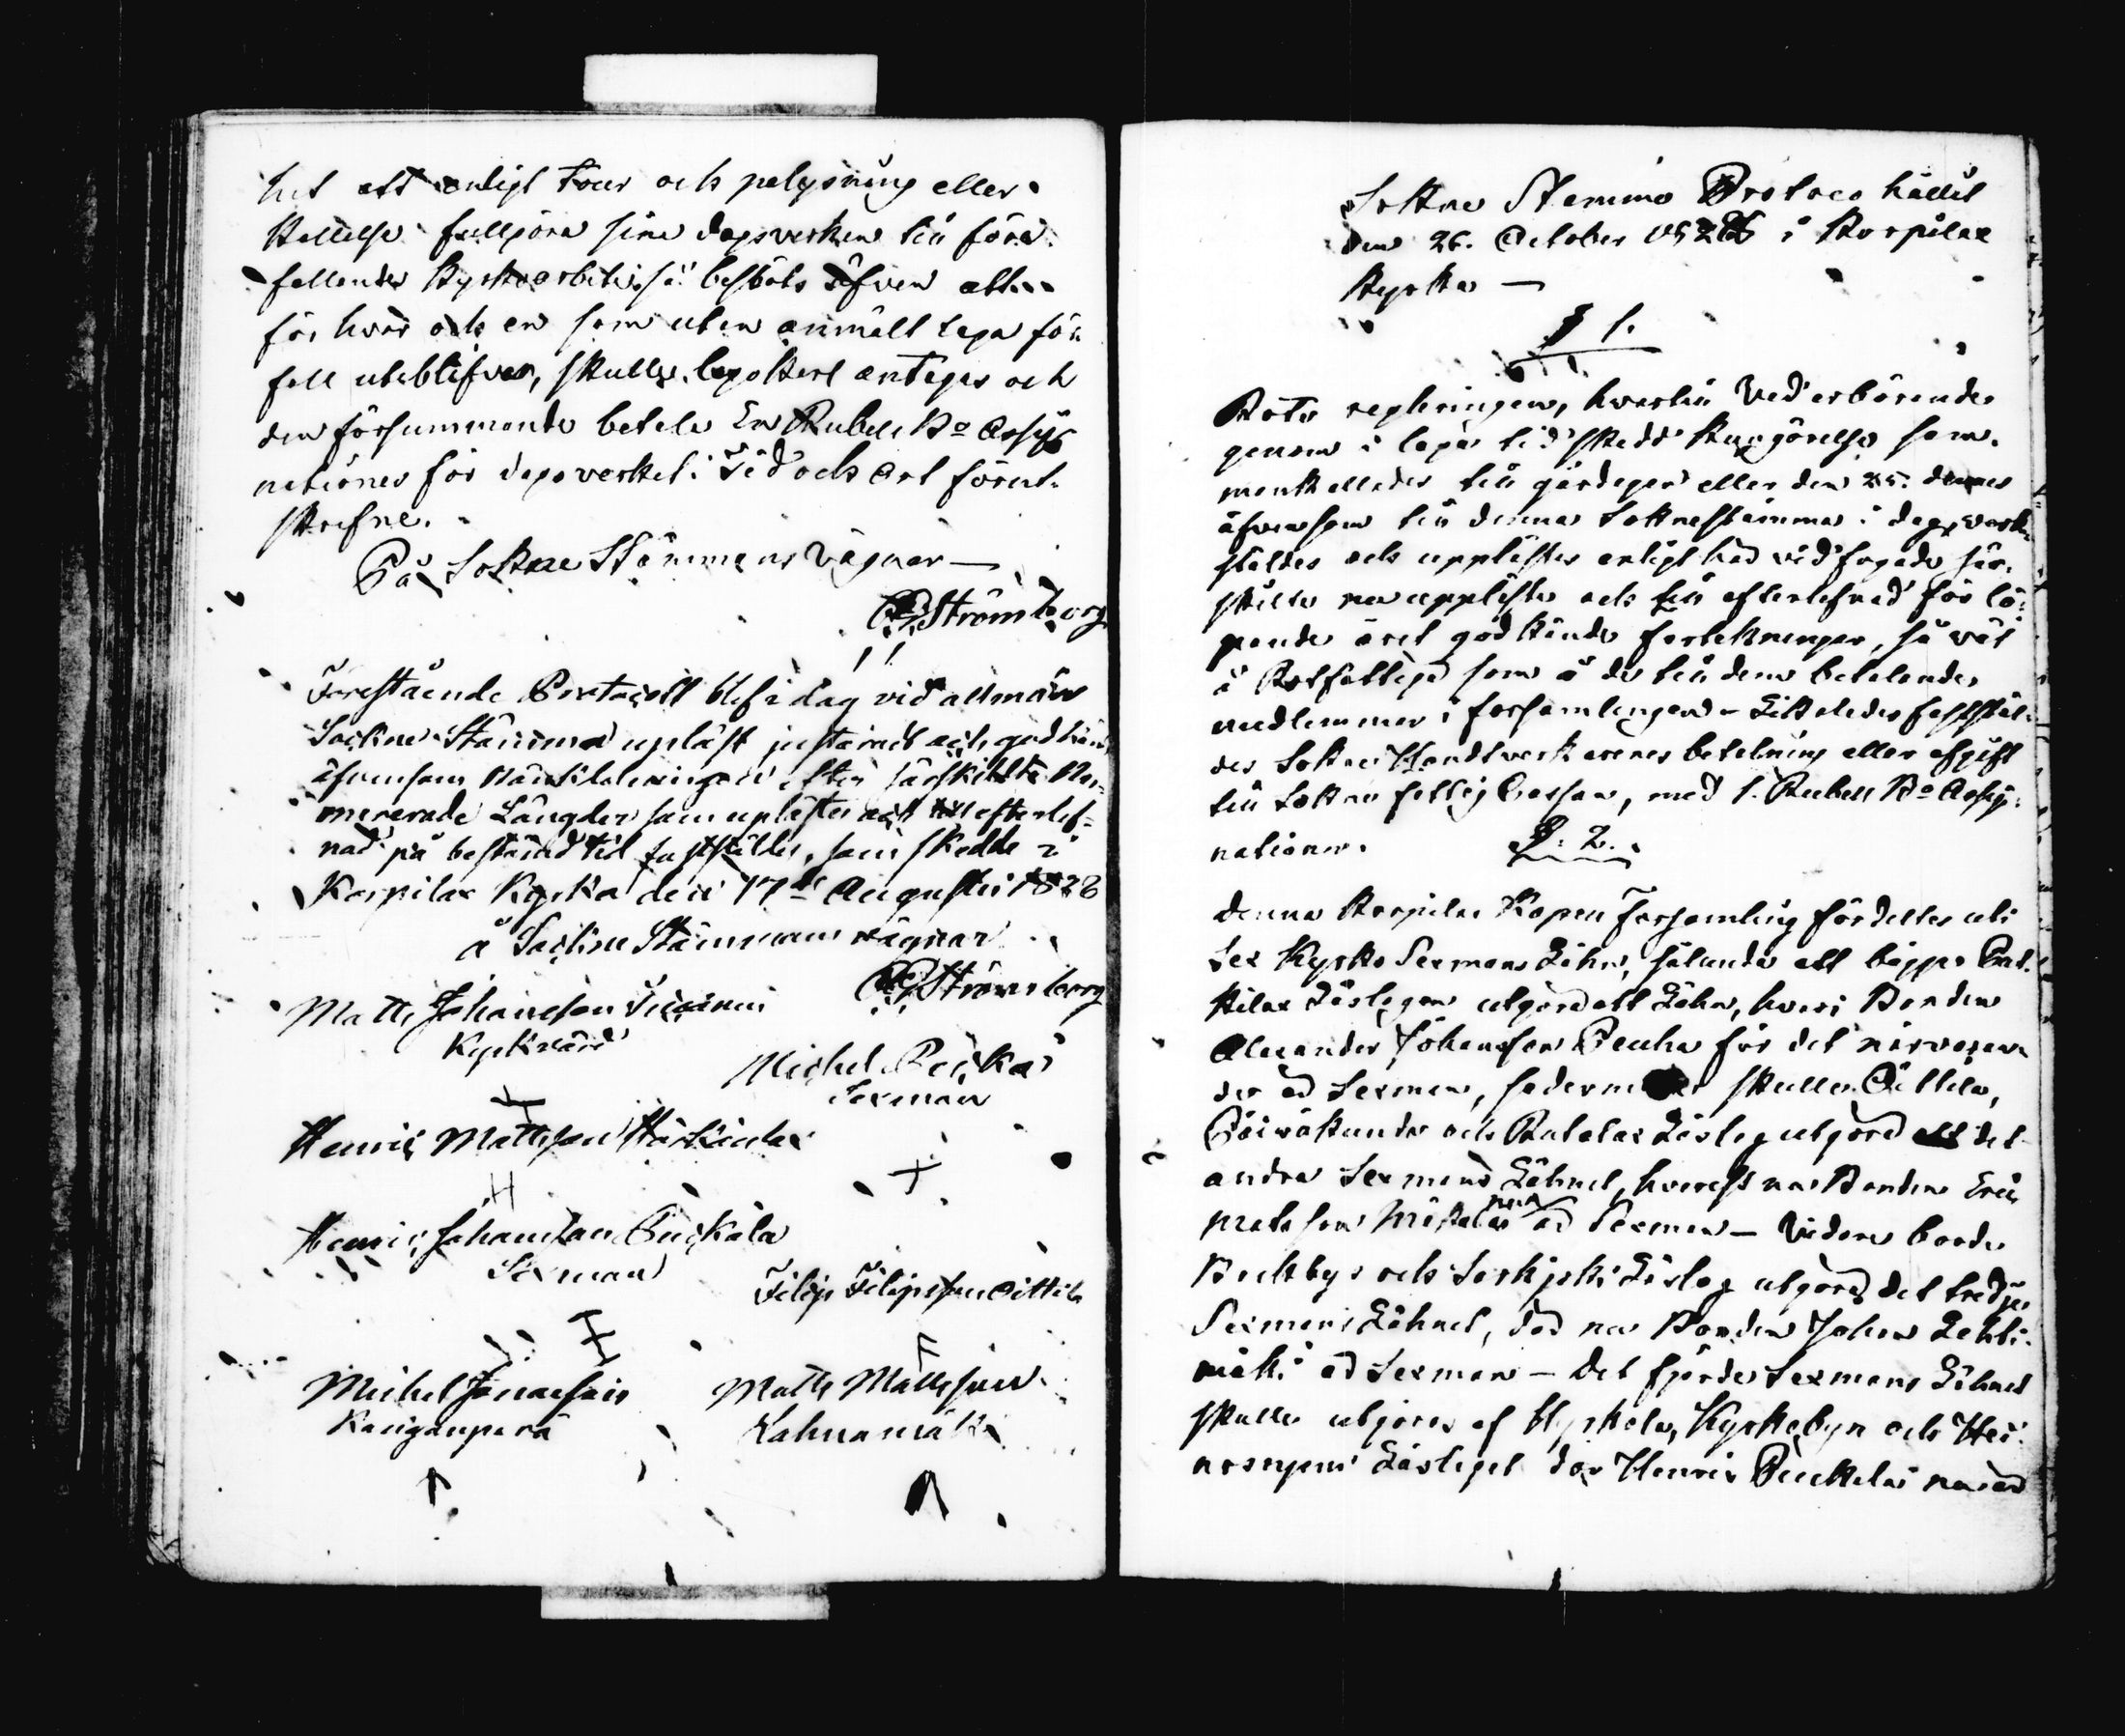 het att enligt tour och palysning eller
kallelse fullgöra sina dagsverken till före-
fallande kyrkoarbeten, så beslöts äfven att
för hvar och en som utan anmält laga för-
fall uteblifver, skulle legokarl antagas och
den försummande betala En Rubel Bco Assig
nationer för dagsverket. Tid och ort förut-
skrefne.
På Sokne Stämmans vägnar —
Strömborg
Forestående Protocoll blef i dag vid allmän
Sockne Stämma upläst justerad och godkänd
äfvensom efter särskildte No-
mererade Längder som uplästes och till efterlef-
nad på bestämd tid fastställdes, som skedde i
Korpilax Kyrka den 17de Augusti 1828
å Sockne Stämmans vägnar
Strömborg
Matts Johansson
Kyrkvärd
Michel
Sexman
Henric Mattsson
Henric Johansson Puckala
Sexman
Filip Filipsson Oittila
Michel Johansson
Kanganperä
Matts Mattsson
Kahnamäki
Sokne Stemmo Protoco hållit
den 26. October 1828 i Korpilax
Kyrka —
§ 1.
Rote regleringen, hvartill vederbörande
genom i laga tid skedd kungörelse sam-
mankallades till gårdagen eller den 25. dennes
äfvensom till denna Soknestämma i dag, verk-
ställdes och upplästes enligt här vidfogade sär-
skilte nu uppläste och till efterlefnad för lö-
pande året godkände förtekningar, så väl
å Rotfattige som å de till dem betalande
medlemmar i församlingen — Likaledes fastställ-
des Sokne Handtverkarenes betalning eller afgift
till Sokne fattig Cassan, med 1. Rubel Bco Assig-
nationer.
§. 2.
Denna Korpilax Kapell Församling fördeltes uti
sex Kyrko Sexmans Löhn, sålunda att bägge Put-
kilax Läslagen utgöra ett Löhn, hvari Bonden
Alexander Johansson Penha för det närvaran-
de är Sexman, sedermera skulle Oittila,
och Rutalax Läslag utgöra det
andra Sexmans Löhnet, hvarest nu Bonden Eric
Matsson är Sexman — Vidare borde
och Läslag utgöra det tredje
Sexmans Löhnet, der nu Bonden Johan Lehti-
mäki är Sexman — Det fjerde Sexmans Löhnet
skulle utgöras af Kyrkobyn och Hei-
Läslaget der Henric Puckala nu är